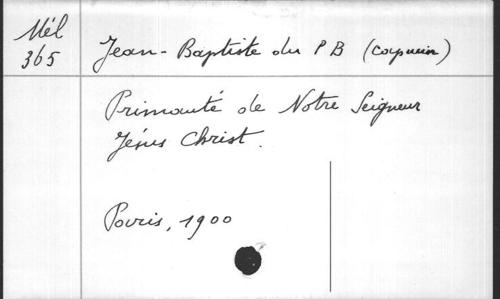 Mél
365
Jean-Baptiste du P B (Capucin)
Primauté de Notre Seigneur
Jésus Christ.
Paris, 1900